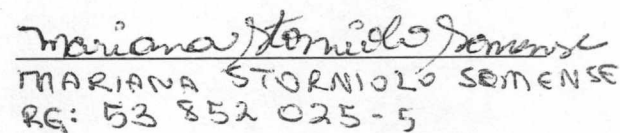 Mariana Storniolo Somense
MARIANA STORNIOLO SOMENSE
RG: 53 852 025-5